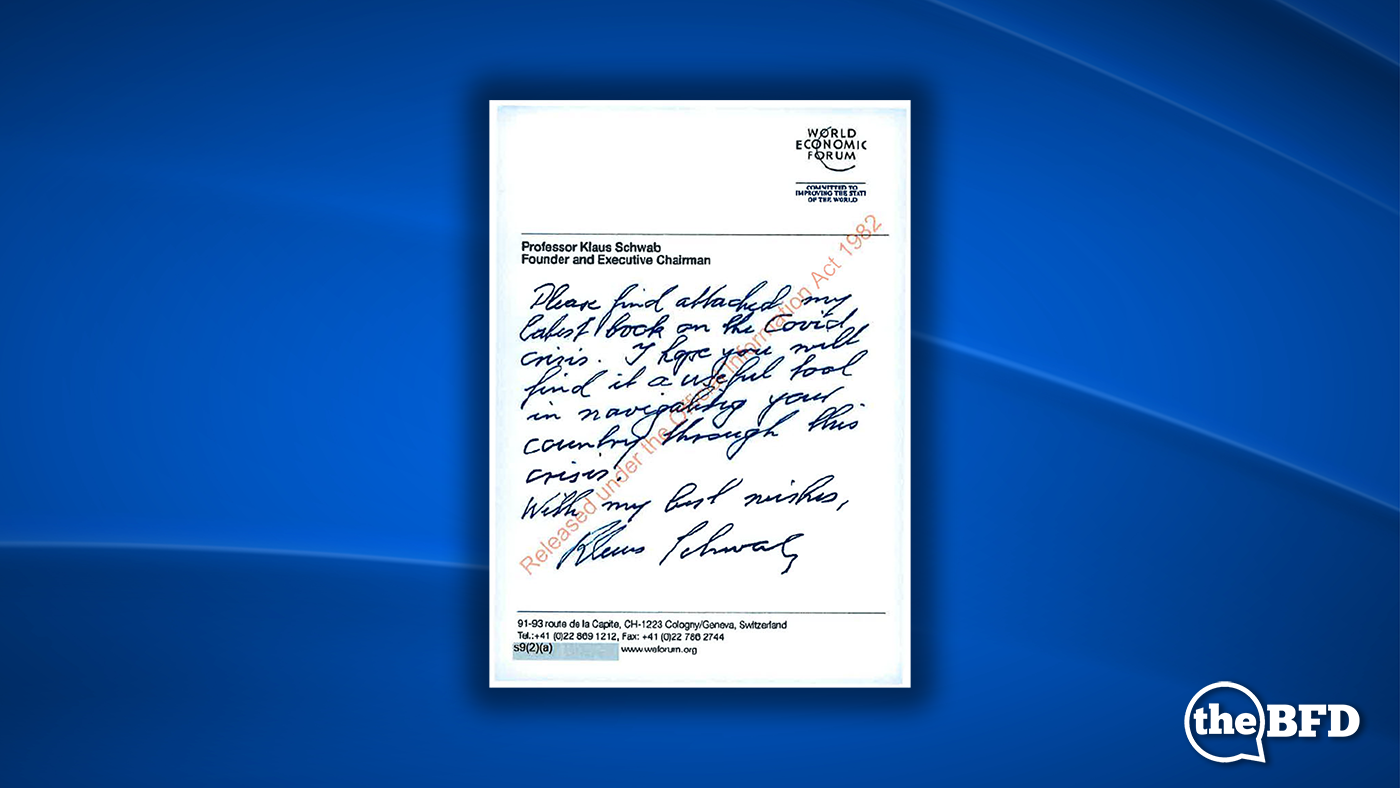 WORLD
ECONOMIC
FORUM
COMMITTED TO
IMPROVING THE STATE
OF THE WORLD
Professor Klaus Schwab
Founder and Executive Chairman
Please find attached my
latest book on the Covid
crisis. I hope you will
find it a useful tool
in navigating your
country through this
crisis.
With my best wishes,
Klaus Schwab
Released under the Official Information Act 1982
91-93 route de la Capite, CH-1223 Cologny/Geneva, Switzerland
Tel.:+41 (0)22 869 1212, Fax: +41 (0)22 786 2744
s9(2)(a) www.weforum.org
theBFD